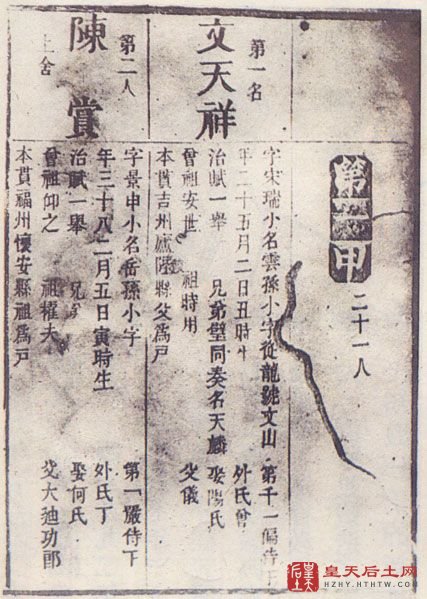 第一甲 二十一人
第一名
文天祥
字宋瑞小名雲孫小字從龍號文山 第千一偏侍下
年二十五月二日丑時生 外氏曾
治賦一舉 兄弟璧同奏名天麟 娶陽氏
曾祖安世 祖特用 父儀
本貫吉州廬陵縣父爲戶
第二人
陳賞
上舍
字景申小名岳孫小字 第一嚴侍下
年三十八二月五日寅時生 外氏丁
治賦一舉 兄 娶何氏
曾祖仰之 祖權夫 父大廸功郎
本貫福州懷安縣祖爲戶
皇天后土网
HZHY.HTHTW.COM